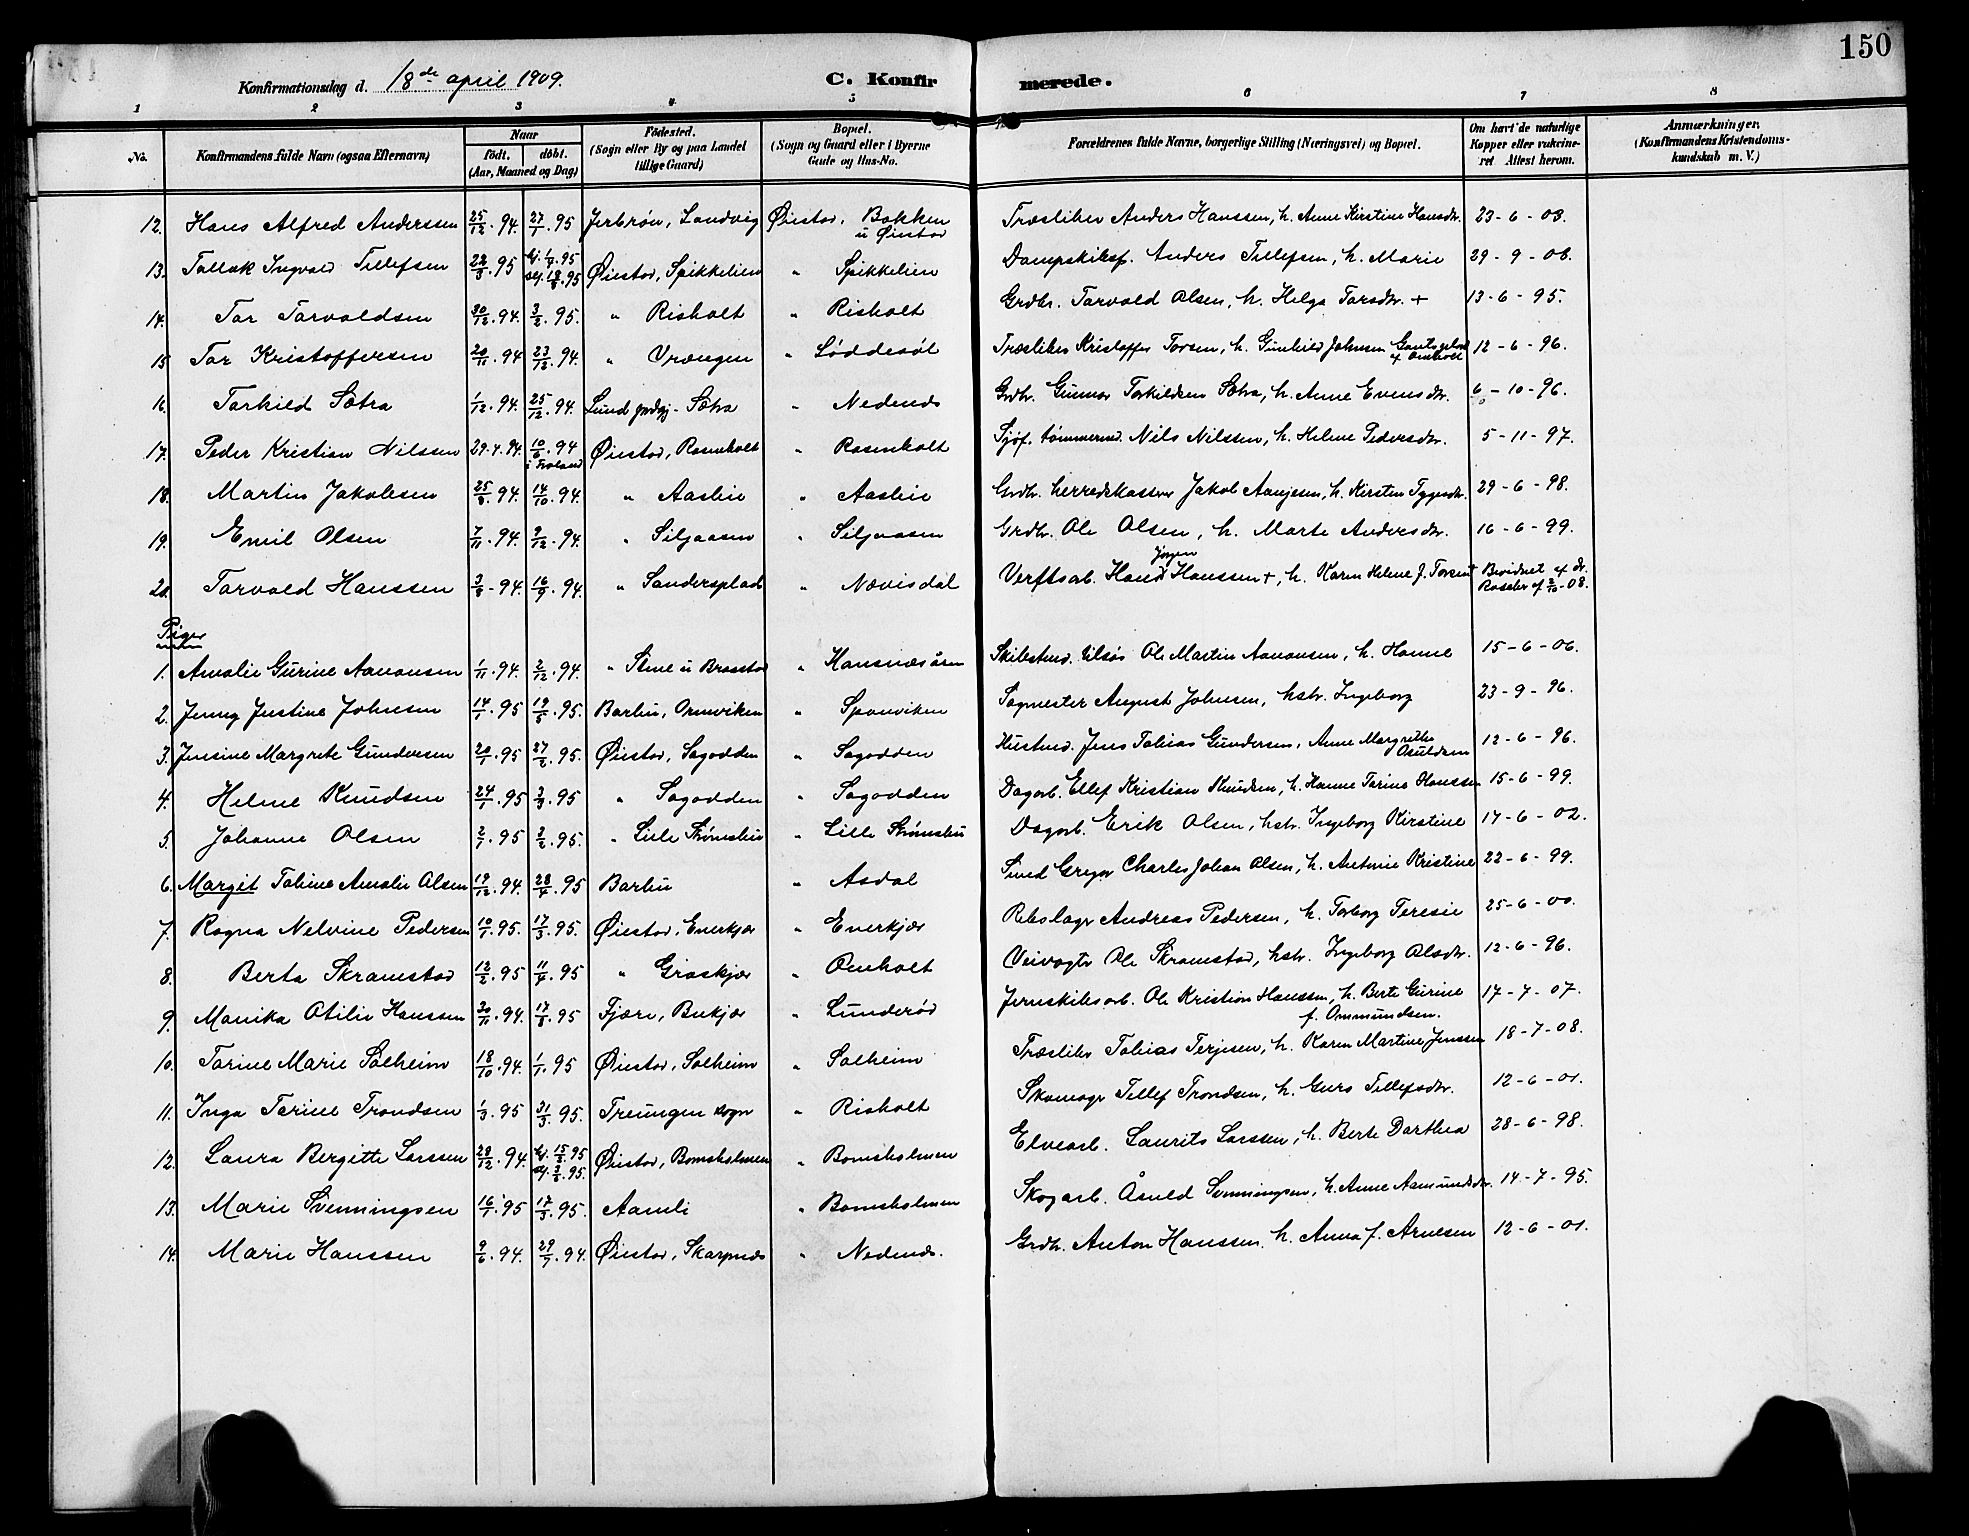 150
Konfirmationsdag d. 18de april 1909. C. Konfirmerede.
1 2 3 4 5 6 7 8
No. Konfirmandens fulde Navn (ogsaa Efternavn) Naar født. døbt. (Aar, Maaned og Dag) Fødested. (Sogn eller By og paa Landet tillige Gaard) Bopæl. (Sogn og Gaard eller i Byerne Gade og Hus-No. Forældrenes fulde Navne, borgerlige Stilling (Næringsvei) og Bopæl. Om havt de naturlige Kopper eller vakcineret Attest herom. Anmærkninger. (Konfirmandens Kristendomskundskab m. V.)
12. Hans Alfred Anderssen 25/12.94. 27/1.95 Jerbrøn, Landvig Øiestad, Bakken u Øiestad Træskiber Anders Hanssen, h. Anne Kirstine Hansdr. 23-6-03.
13. Tallak Ingvald Tellefsen 22/3.95 Øiestad, Spikkelien " Spikkelien Dampskibsf. Anders Tellefsen, h. Marie 29-9-06.
14. Tar Tarvaldsen 30/12.94. 3/2.95. " Risholt " Risholt Grdbr. Tarvald Olsen, h. Helga Tarsdr. + 13-6-95.
15 Tar Kristoffersen 20/11.94 23/12.94. " Vrængen " Løddesøl Kristoffer Torsen, h. Gunhild Johnsen 12-6-96.
16. Tarkild Sætra 1/12.94. 25/12.94. Lund prdgj. - Sætra " Nedenæs Grdbr. Gunnar Tarkildsen Sætra, h. Anne Evensdr. 6-10-96.
17. Peder Kristian Nilssen 29.4.94. 10/6.94 i Froland Øiestad, Rosenholt " Rosenholt Sjøf. tømmermd. Nils Nilssen, h. Helene Pedersdr. 5-11-97.
18. Martin Jakobsen 25/8.94. 14/10.94. " Aaslie " Aaslie Grdbr. herredskasserer Jakob Aanjesen, h. Kirsten Tygesdr. 29-6-98.
19. Emil Olsen 7/11.94. 9/12.94. " Siljaasen " Siljaasen Grdbr. Ole Olsen, h. Marte Andersdr. 16-6-99.
20. Tarvald Hanssen 3/8.94. 16/9.94. " Sandersplads " Nævisdal Verftsarb. Hans Jørgen Hanssen +, h. Karen Helene J. Bevidnet af dr. Roscher af 2/10-08.
Piger
1. Amalie Gurine Aanonsen 1/11.94. 2/12.94. " Stene u Braastad " Hansnæsåsen Ole Martin Aanonsen, h. Hanne 15-6-06.
2. Jenny Justine Johnsen 14/1.95 19/5.95. Barbu, Ormviken " Spanviken Sagmester August Johnsen, hstr. Ingeborg 23-9-96.
3. Jensine Margrete Gundersen 20/1.95 27/2.95. Øiestad, Sagodden " Sagodden Husmd. Jens Tobias Gundersen, Anne Margrethe Asuldsen 12-6-96.
4. Helene Knudsen 24/1.95 3/3.95 " Sagodden " Sagodden Dagarb. Ellef Kristian Knudsen, h. Hanne Tarine Hanssen 15-6-99.
5. Johanne Olsen 2/1.95 3/2.95. " Lille Strømsbu " Lille Strømsbu Dagarb. Erik Olsen, hstr. Ingeborg Kirstine 17-6-02.
6. Margit Tobine Amalie Olsen 19/12.94. 28/4.95 Barbu " Asdal Smed Gregor Charles Johan Olsen, h. Antonie Kristine 22-6-99.
7. Ragna Nelvine Pedersen 10/1.95. 17/3.95. Øiestad, Enerkjær " Enerkjær Rebslager Andreas Pedersen, h. Torborg Teresie 25-6-00.
8. Berta Skramstad 12/2.95 11/4.95 " Graskjær " Omholt Veivogter Ole Skramstad, hstr. Ingeborg Olsdr. 12-6-96.
9. Manika Otilie Hanssen 30/11.94. 17/8.95 Fjære, Bukjær " Lunderød Jernskibsarb. Ole Kristian Hanssen, h. Berte Gurine f. Ommundsen. 17-7-07.
10. Tarine Marie Solheim 18/10.94. 1/1.95 Øiestad, Solheim " Solheim Tobias Terjesen, h. Karen Martine Jenssen 18-7-08.
11. Inga Tarine Trondsen 1/3.95 31/3.95. Treungen sogn " Risholt Skomager Tellef Trondsen, h. Guro Tellefsdr. 12-6-01.
12. Laura Bergitte Larssen 28/12.94. Øiestad, Bomsholmen " Bomsholmen Elvearb. Laurits Larssen, h. Berte Dorthea 28-6-98.
13. Marie Svenningsen 16/1.95 17/3.95. Aamli " Bomsholmen Skogarb. Åsuld Svenningsen, h. Anne Aamundsdr. 14-7-95.
14. Marie Hanssen 9/6.94. 29/7.94. Øiestad, Skarpnæs " Nedenæs. Grdbr. Anton Hanssen, h. Anna f. Arnesen 12-6-01.